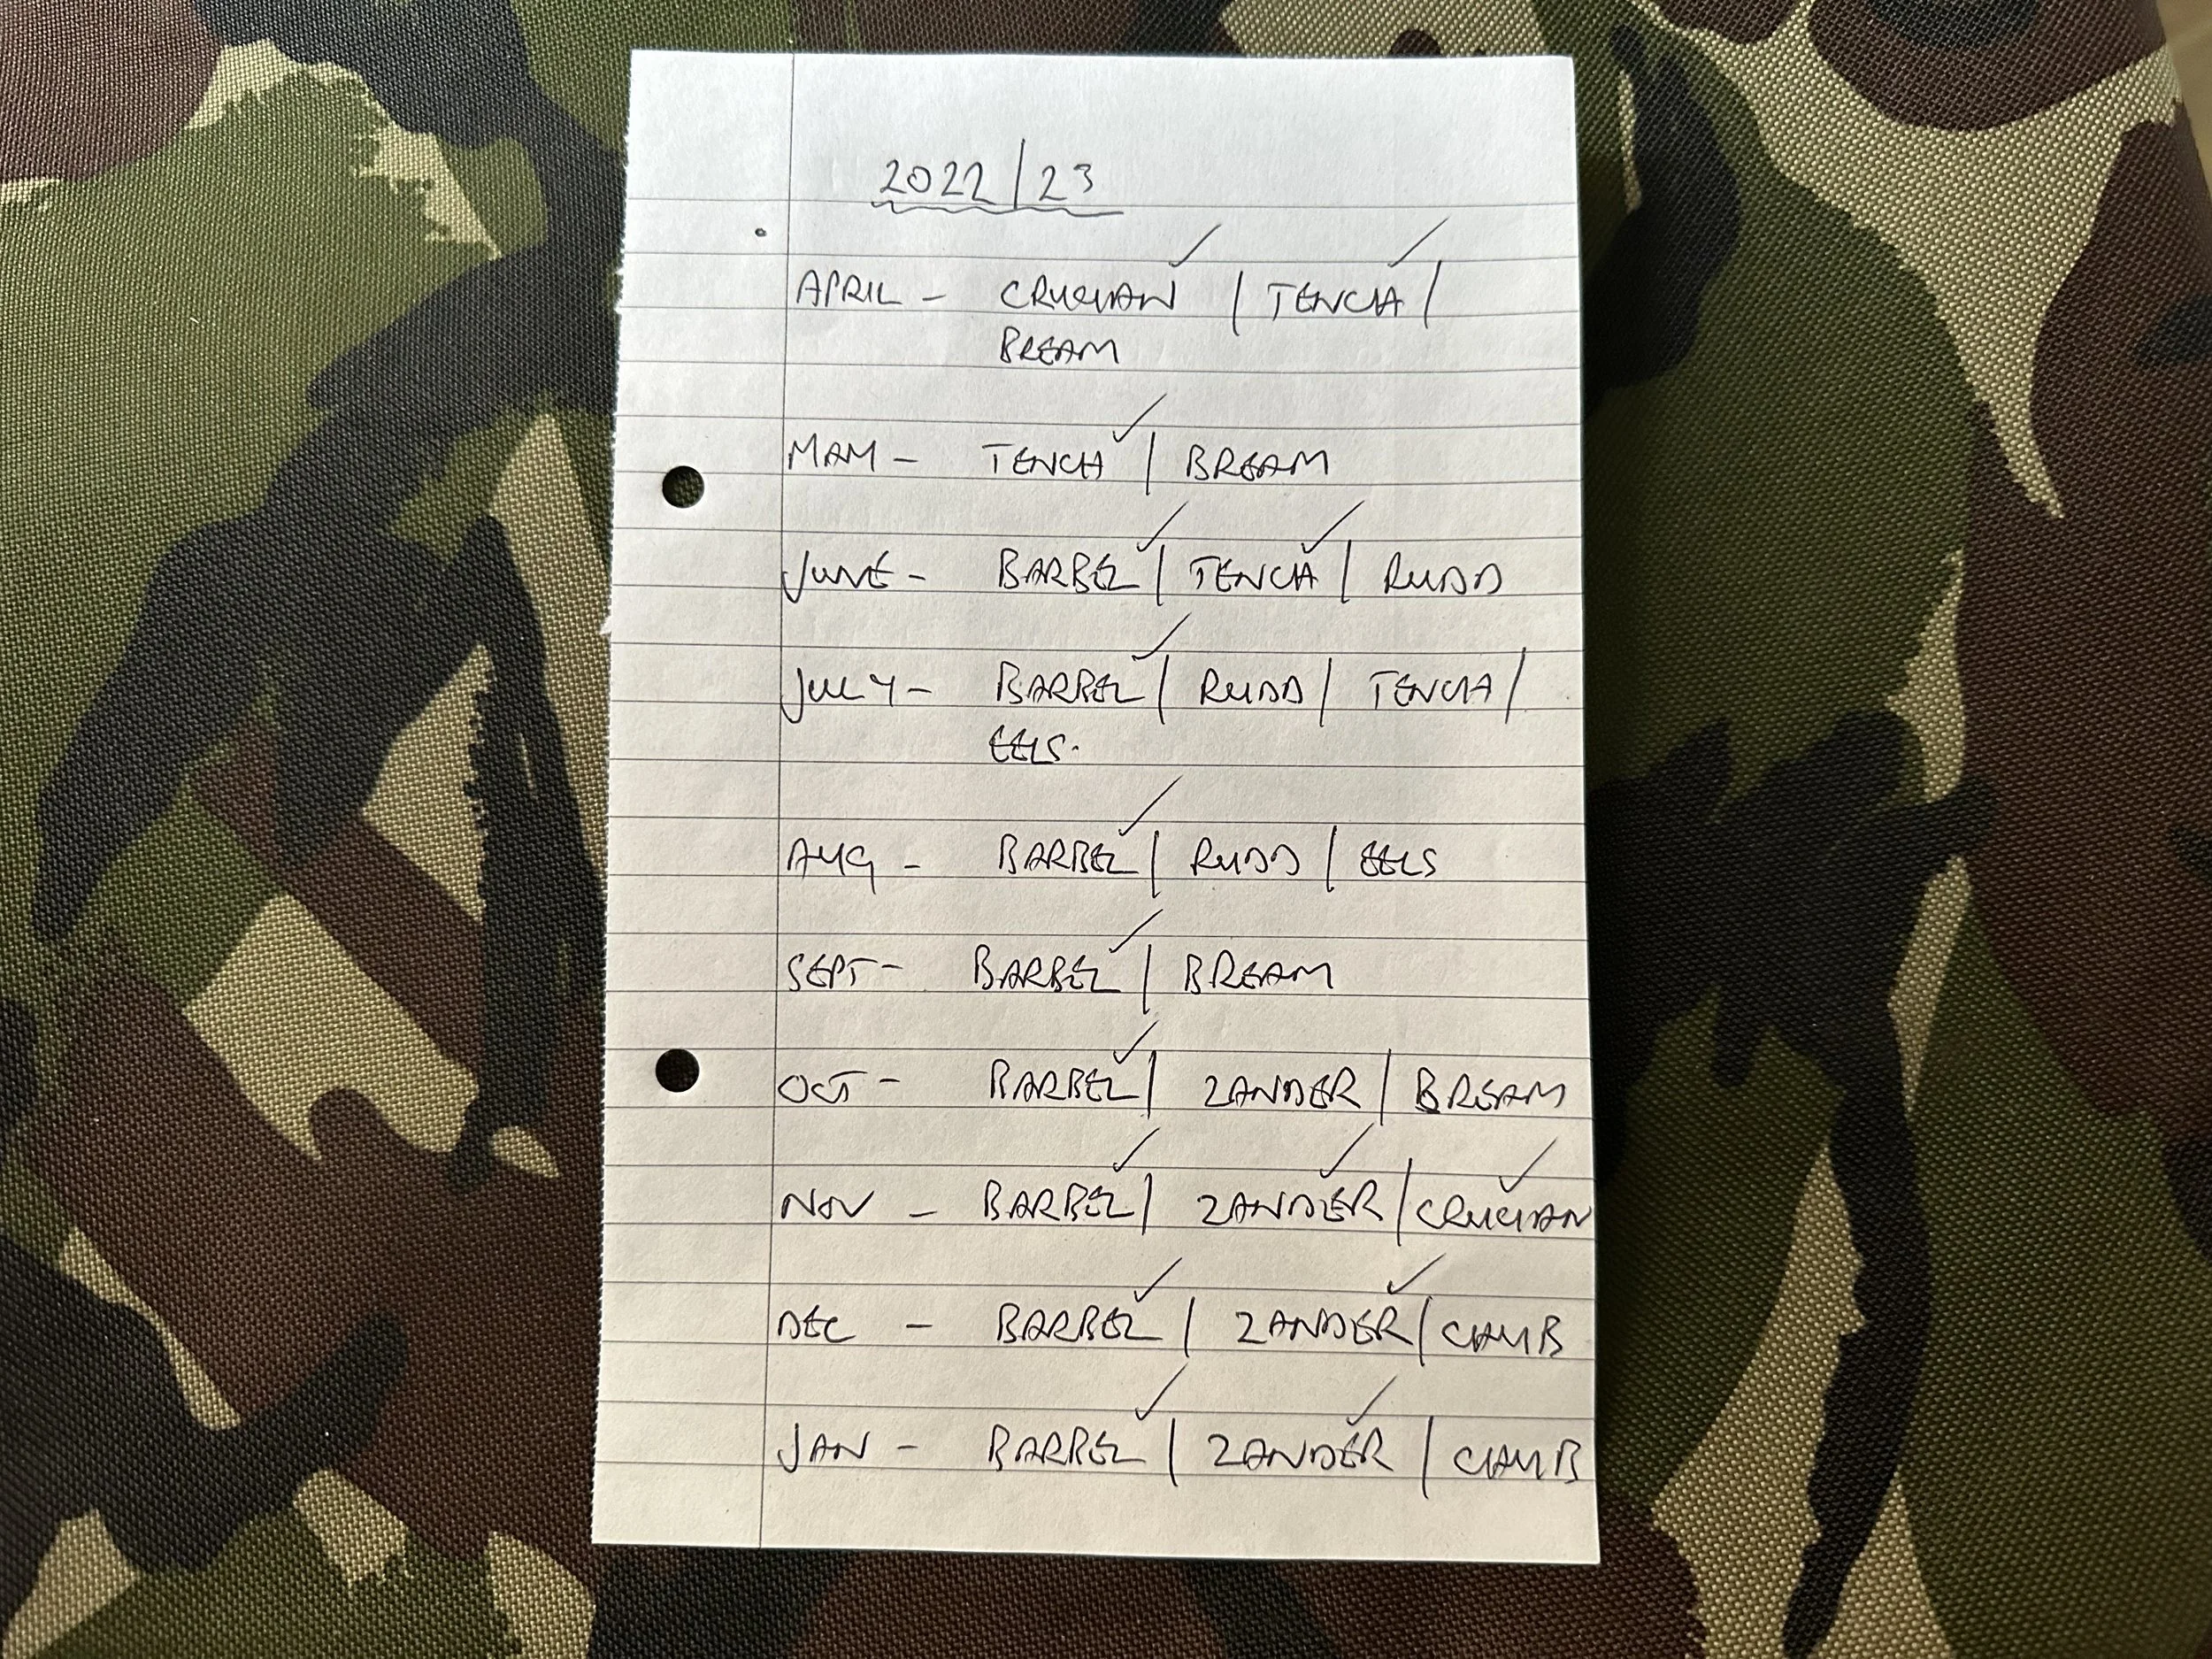 2022/23
APRIL - CRUCIAN ✓ / TENCH ✓ /
BREAM
MAY - TENCH ✓ / BREAM
JUNE - BARBEL ✓ / TENCH ✓ / RUDD
JULY - BARBEL ✓ / RUDD / TENCH /
EELS.
AUG - BARBEL ✓ / RUDD / EELS
SEPT - BARBEL ✓ / BREAM
OCT - BARBEL ✓ / ZANDER / BREAM
NOV - BARBEL ✓ / ZANDER ✓ / CRUCIAN ✓
DEC - BARBEL ✓ / ZANDER ✓ / CHUB
JAN - BARBEL ✓ / ZANDER ✓ / CHUB